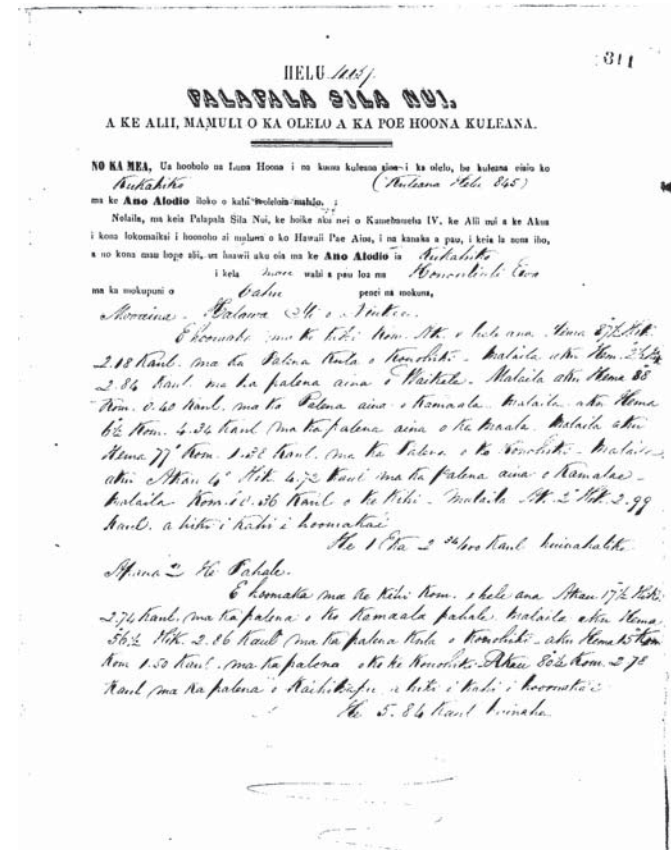 311
HELU
PALAPALA SILA NUI,
A KE ALII, MAMULI O KA OLELO A KA POE HOONA KULEANA.
NO KA MEA, Ua hoohola na Luna Hoona i na kumu kuleana aina i ka olelo, he kuleana oiaio ko
Kukahiko (Kuleana Helu 845)
ma ke Ano Alodio iloko o kahi i oleloia malalo,
Nolaila, ma keia Palapala Sila Nui, ke hoike aku nei o Kamehameha IV. ke Alii nui a ke Akua
i kona lokomaikai i hoonoho ai maluna o ko Hawaii Pae Aina, i na kanaka a pau, i keia la nona iho,
a no kona mau hope alii, ua haawii aku oia ma ke Ano Alodio ia Kukahiko
i kela wahi a pau loa ma Honouliuli Ewa
ma ka mokupuni o Oahu penei na mokuna,
E hoomaka ma ke kihi Kom. Ak. e hele ana Hema 87½ Hik.
2.18 Kaul. ma ka Palena Kula o Konohiki. Malaila aku Hem.
2.84 Kaul. ma ka palena aina o Waikele. Malaila aku Hema 88
Kom. 0.40 Kaul. ma ka Palena aina o Kamaala. Malaila aku Hema
6½ Kom. 4.34 Kaul ma ka palena aina o ka maala. Malaila aku
Hema 77° Kom. 1.38 Kaul. ma ka Palena o ko Konohiki. Malaila
aku Akau 4° Hik 4.72 Kaul ma ka palena aina o Kamalae.
Malaila Kom. .36 Kaul o ke Kihi. Malaila Ak. 2° Hik. 2.99
Kaul. a hiki i kahi i hoomakai
He 1 Eka 2 34/100 Kaul huinahalike
Apana 2 He Pahale.
E hoomaka ma ke kihi Kom. e hele ana Akau 17½ Hik.
2.74 Kaul. ma ka palena o ko Kamaala pahale. Malaila aku Hema
56½ Hik. 2.86 Kaul ma ka palena Kula o Konohiki. aku Hema 15
Kom 1.50 Kaul. ma ka palena o ko ke Konohiki. Akau 80½ Kom. 2.78
Kaul ma ka palena o a hiki i kahi i hoomakai
He 5.84 Kaul huinaha